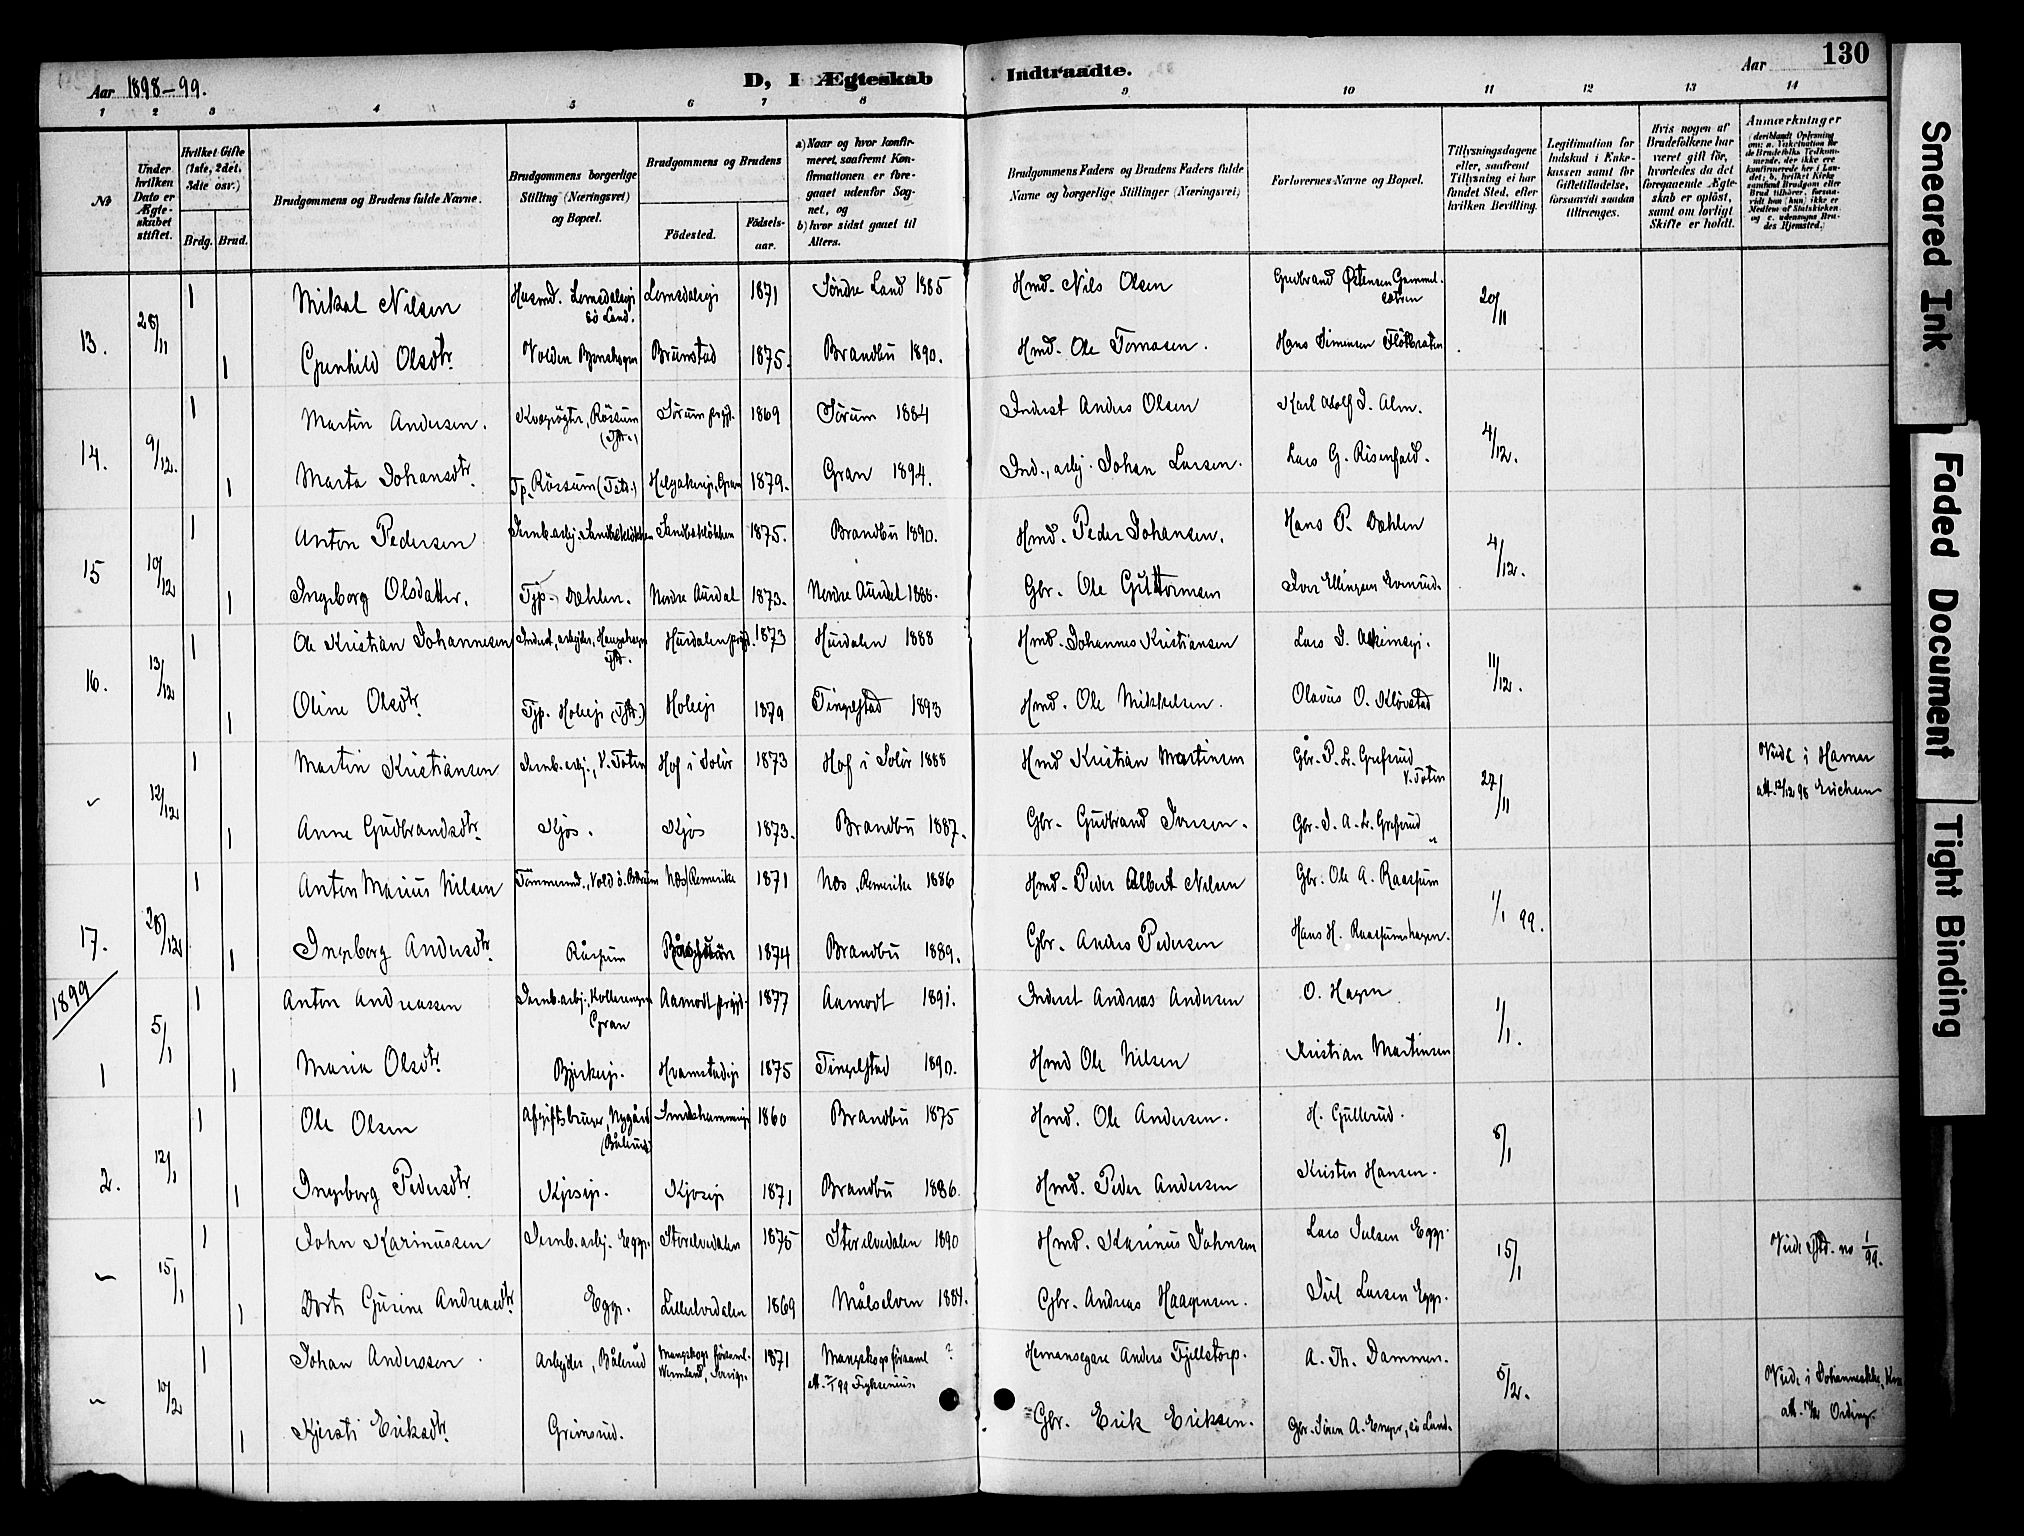 130
Aar 1898-99.
D, I Ægteskab
Indtraadte.
Aar
1 2 3 4 5 6 7 8 9 10 11 12 13 14
No
Under hvilken Dato er Ægteskabet stiftet.
Hvilket Gifte (1ste, 2det, 3die osv.)
Brdg. Brud.
Brudgommens og Brudens fulde Navne.
Brudgommens borgerlige Stilling (Næringsvei) og Bopæl.
Brudgommens og Brudens
Fødested.
Fødselsaar.
a) Naar og hvor konfirmeret, saafremt Konfirmationen er foregaaet udenfor Sognet, og
b) hvor sidst gaaet til Alters.
Brudgommens Faders og Brudens Faders fulde Navne og borgerlige Stillinger (Næringsvei)
Forlovernes Navne og Bopæl.
Tillysningsdagene eller, saafremt Tillysning ei har fundet Sted, efter hvilken Bevilling.
Legitimation for Indskud i Enkekassen samt for Giftetilladelse, forsaavidt saadan tiltrænges.
Hvis nogen af Brudefolkene har været gift før, hvorledes da det foregaaende Ægteskab er opløst, samt om lovligt Skifte er holdt.
Anmærkninger
13. 28/11 1 Mikal Nilsen Husmd. Lomsdalseje Sø Land. Lomsdalseje 1871 Söndre Land 1885 Hmd. Nils Olsen Gudbrand Østensen Gammelsætren 20/11
1 Gunhild Olsdtr. Volden Brunstad 1875. Brandbu 1890. Hmd. Ole Tomasen. Hans Simensen
14. 9/12. 1 Martin Andersen. Kvægrøgter, Røssum Sørum prgj. 1869 Sörum 1884 Inderst Anders Olsen Karl Adolf J. Alm. 4/12.
1 Marta Johansdtr. Tp. Røssum 1879. Gran 1894. Ind., arbj. Johan Larsen. Lars G. Risenfald.
15 10/12 1 Anton Pedersen Jernb.arbj. 1875. Brandbu 1890. Hmd. Peder Johansen. Hans P. Dæhlen 4/12.
1 Ingeborg Olsdatter. Tjp. Dæhlen. Nordre Aurdal 1873. Nordre Aurdal 1888. Gbr. Ole Guttormsen Iver Ellingsen
16. 13/12 1 Ole Kristian Johannesen Inderst, arbejder, Hurdalen prgj. 1873 Hurdalen 1888 Hmd. Johannes Kristiansen Lars J. 11/12.
1 Oline Olsdtr. Tjp. Holeje Holeje 1879 Tingelstad 1893 Hmd. Ole Mikkelsen. Olavus O. Kløvstad
" 12/12 1 Martin Kristiansen Jernb.arbj., V. Toten Hof i Solør 1873 Hof i Solør 1888 Hmd Kristian Martinsen Gbr. P. L. Grefsrud V. Toten 27/11 Viede i Hamar att. 12/12 98 Erichsen
1 Anne Gudbrandsdtr. Kjos. Kjos 1873. Brandbu 1887. Gbr. Gudbrand Iversen. Gbr. J. A. L. Grefsrud "
17. 28/12 1 Anton Marius Nilsen Tömmermd., Nes, Romerike 1871 Nes, Romerike 1886 Hmd. Peder Albert Nilsen Gbr. Ole A. Raassum 1/1 99.
1 Ingeborg Andersdtr. Råssum Råssum 1874 Brandbu 1889. Gbr. Anders Pedersen Hans H. Raassumshagen.
1899
1 5/1 1 Anton Andreassen Jernb.arbj. Gran Aamodt prgjd. 1877 Aamodt 1891. Inderst Andreas Andersen O. Hagen 1/1.
1 Maria Olsdtr. Bjerkeje. Hvamstadeje 1875 Tingelstad 1890. Hmd Ole Nilsen Kristian Martinsen
2. 12/1 1 Ole Olsen Afgiftsbruger, Nygård (Bålerud) 1860 Brandbu 1875 Hmd. Ole Andersen. H. Gullerud. 8/1
1 Ingeborg Pedersdtr. Kjoseje. Kjoseje 1871 Brandbu 1886. Hmd. Peder Andersen Kristen Hansen.
" 15/1 1 John Karinussen Jernb.arbj. Egge. Storelvedalen 1875 Storelvedalen 1890 Hmd. Karinus Johnsen Lars Julsen Egge. 15/1 Viede no 1/99.
1 Dorte Gurine Andreasdtr Egge. Lillelvedalen 1869 Målselven 1884. Gbr. Andreas Haagensen. Jul Larsen Egge.
" 10/2 1 Johan Andersson. Arbejder, Bålerud Mangskogs församl. Wermland, Sverige. 1871 Mangskogs församl ? Hemansegare Anders Fjellstorp. A. Th. Dammen. 5/2. Viede i
1 Kjersti Eriksdtr. Grimsrud. Gbr. Erik Eriksen. Gbr. Sören A. Enger, Sö Land.
Smeared Ink
Faded Document
Tight Binding